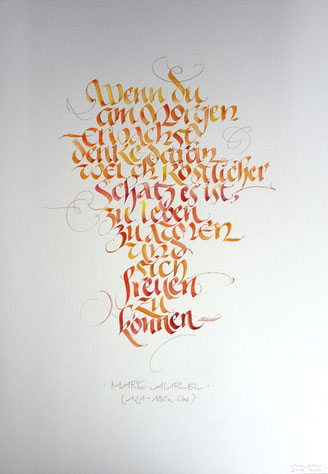 Wenn du
am Morgen
erwachst
denke daran
welch köstlicher
Schatz es ist,
zu leben
zu atmen
und
sich
freuen
zu
können –
· MARC AUREL ·